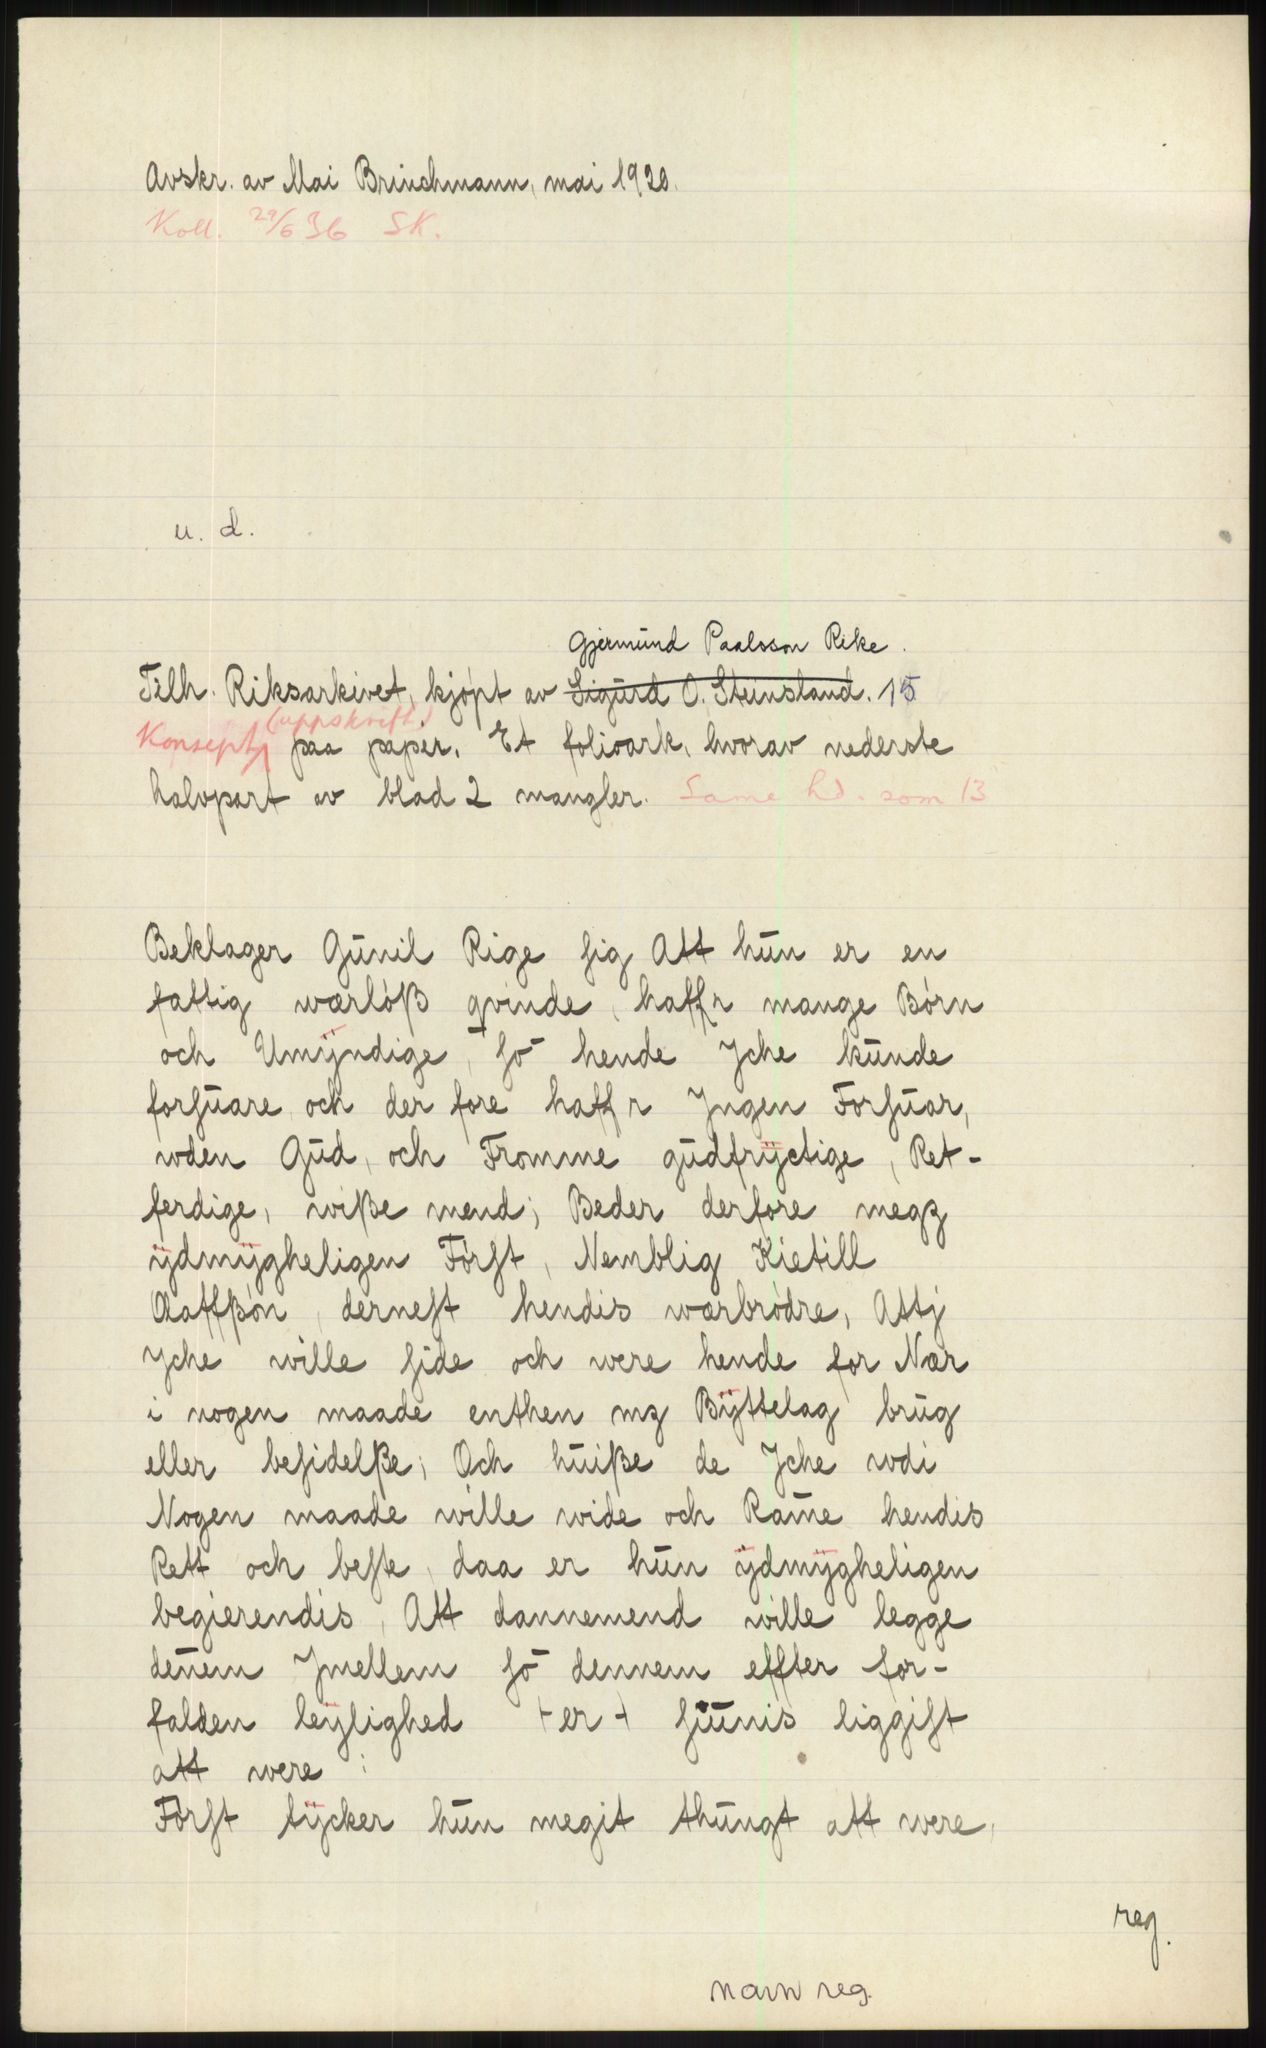 Avskr. av Mai Brinchmann, mai 1920.
Koll. 29/6 36 SK.
u. d.
Gjermund Paalsson Rike.
Tilh. Riksarkivet, kjøpt av Sigurd O. Steinsland. 15
(uppskrift)
Konsept paa papir. Et folioark, hvorav nederste
halvpart av blad 2 mangler. Same hd. som 13
Beklager Gunil Rige sig Att hun er en
fattig wærløß qvinde, haffr mange Børn
och Umÿndige, so hende Jche kunde
forsuare och der fore haffr Jngen Forsuar,
wden Gud, och Fromme gudfrÿctige, Ret-
ferdige, wiße mend; Beder derfore megz
ÿdmÿgheligen Først, Nemblig Kietill
Olaffßøn, dernest hendis wærbrødre, Attj
Jche wille side och were hende for Nær
i nogen maade enthen mz Bÿttelag brug
eller besidelße; Och huiße de Jche wdi
Nogen maade wille wide och Rame hendis
Rett och beste, daa er hun ÿdmÿgheligen
begierendis, Att dannemend wille legge
denem Jmellem so dennem effter for-
falden leÿlighed + er + siunis liggist
att were :
Først tÿcker hun megit thungt att were,
reg.
navn reg.